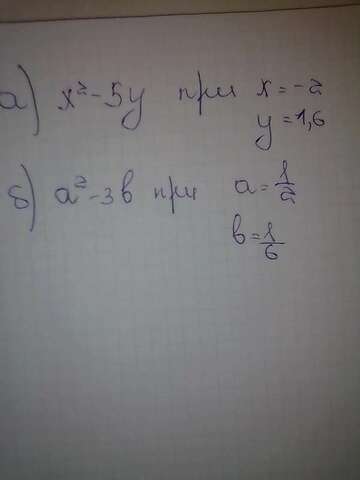 а) x² - 5y при x = -2
y = 1,6
б) a² - 3b при a = 1/2
b = 1/6